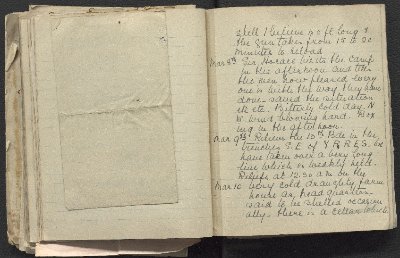 shell I believe is 5 ft long &
the gun takes from 15 to 20
minutes to reload
Mar 8th Sir Horace visits the camp
in the afternoon and tells
the men how pleased every
one is with the way they have
done - saved the situation
etc etc. Bitterly cold day N
W. wind blowing hard.
ing in the afternoon.
Mar 9th Relieve the 10th Bde in the
trenches S.E of YPRES. We
have taken over a very long
line which is weakly held.
Reliefs at 12.30 a.m on the
Mar 10 very cold draughty farm
house as head quarters
said to be shelled occasion
ally. There is a cellar which